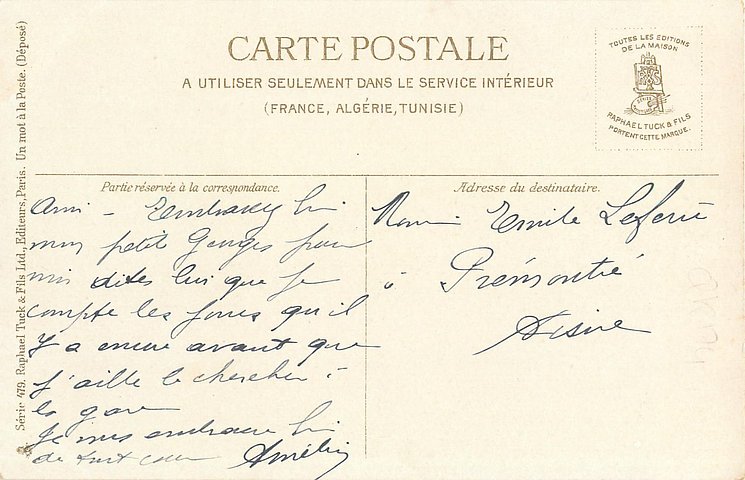 CARTE POSTALE
A UTILISER SEULEMENT DANS LE SERVICE INTÉRIEUR
(FRANCE, ALGÉRIE, TUNISIE)
TOUTES LES EDITIONS
DE LA MAISON
RAPHAEL TUCK & FILS
PORTENT CETTE MARQUE.
Série 479. Raphael Tuck & Fils Ltd., Editeurs, Paris. Un mot à la Poste. (Déposé)
Partie réservée à la correspondance.
Ami – Embrassez bi
mon petit Georges pour
moi dites lui que je
compte les jours qu'il
y a encore avant que
j'aille le chercher à
la gare
Je vous embrasse bi
de tout coeur Amélie
Adresse du destinataire.
Emile
à Prémontré
Aisne